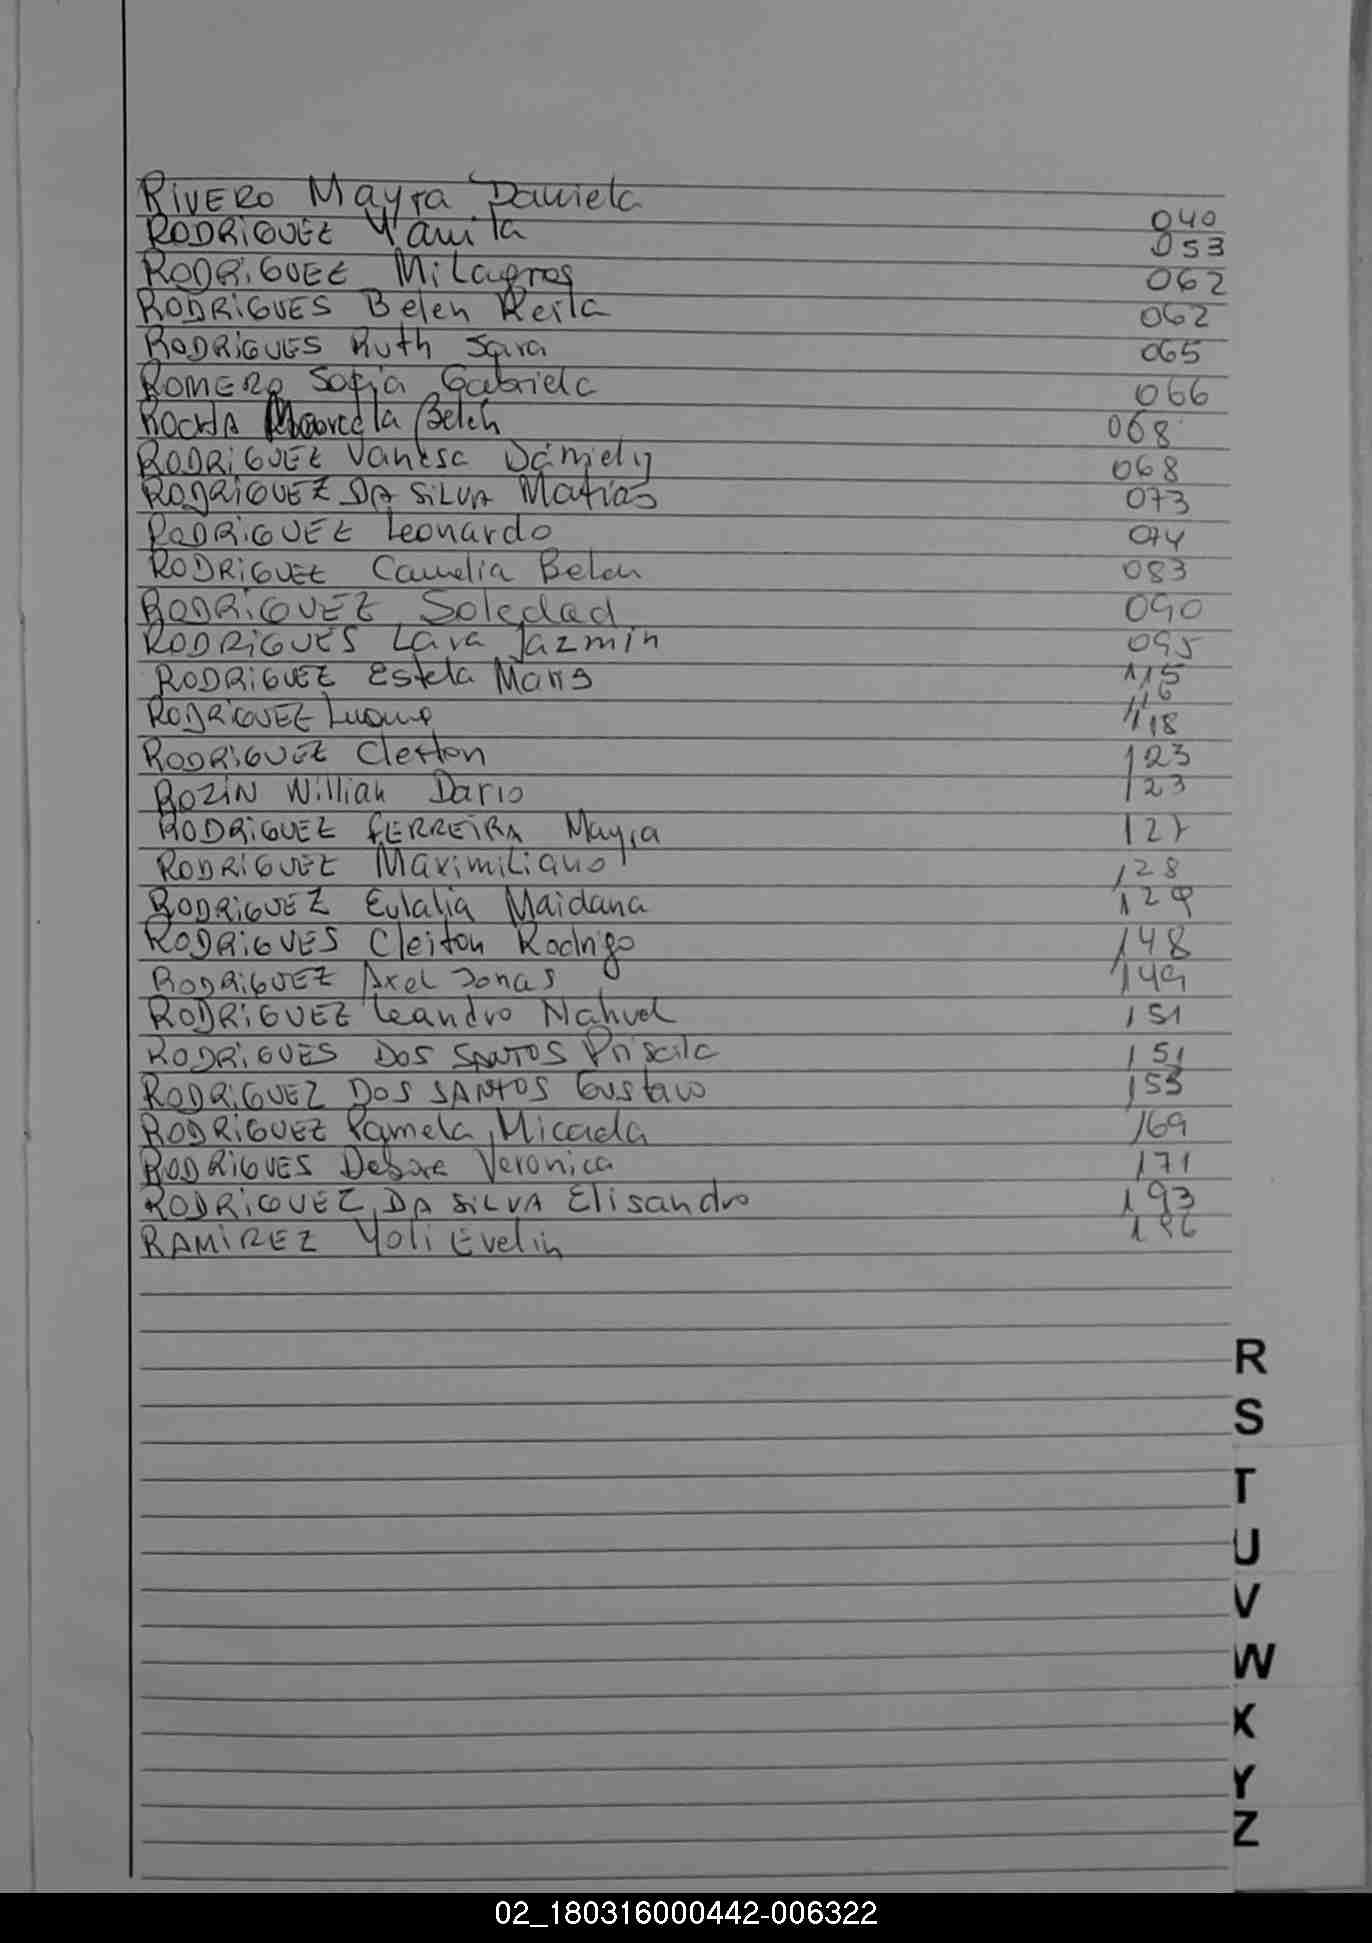 RIVERO Mayra Daniela 040
RODRIGUEZ Yamila 053
RODRIGUEZ Milagros 062
RODRIGUES Belen Keila 062
RODRIGUES Ruth Sara 065
ROMERO Sofia Gabriela 066
ROCHA Marcela Belen 068
RODRIGUEZ Vanesa Daniely 068
RODRIGUEZ DA SILVA Matias 073
RODRIGUEZ Leonardo 074
RODRIGUEZ Camelia Belen 083
RODRIGUEZ Soledad 090
RODRIGUES Lara Jazmin 095
RODRIGUEZ Estela Maris 115
116
RODRIGUEZ 118
RODRIGUEZ Cleiton 123
ROZIN Willian Dario 123
RODRIGUEZ FERREIRA Mayra 127
RODRIGUEZ Maximiliano 128
RODRIGUEZ Eulalia Maidana 129
RODRIGUES Cleiton Rodrigo 148
RODRIGUEZ Axel Jonas 149
RODRIGUEZ Leandro Nahuel 151
RODRIGUES DOS SANTOS Priscila 151
RODRIGUEZ DOS SANTOS Gustavo 153
RODRIGUEZ Pamela Micaela 169
RODRIGUES Debora Veronica 171
RODRIGUEZ DA SILVA Elisandro 193
RAMIREZ Yoli Evelin 196
R
S
T
U
V
W
X
Y
Z
02_180316000442-006322